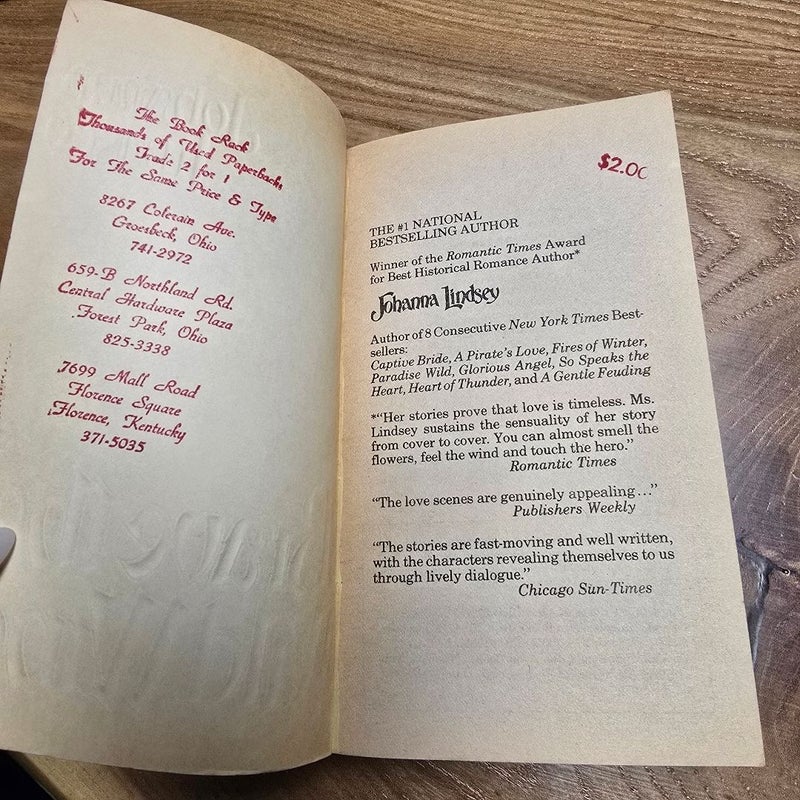 The Book Rack
Thousands of Used Paperbacks
Trade 2 for 1
For The Same Price & Type
8267 Colerain Ave.
Groesbeck, Ohio
741-2972
659-B Northland Rd.
Central Hardware Plaza
Forest Park, Ohio
825-3338
7699 Mall Road
Florence Square
Florence, Kentucky
371-5035
$2.00
THE #1 NATIONAL
BESTSELLING AUTHOR
Winner of the Romantic Times Award
for Best Historical Romance Author*
Johanna Lindsey
Author of 8 Consecutive New York Times Best-
sellers:
Captive Bride, A Pirate's Love, Fires of Winter,
Paradise Wild, Glorious Angel, So Speaks the
Heart, Heart of Thunder, and A Gentle Feuding
*"Her stories prove that love is timeless. Ms.
Lindsey sustains the sensuality of her story
from cover to cover. You can almost smell the
flowers, feel the wind and touch the hero."
Romantic Times
"The love scenes are genuinely appealing..."
Publishers Weekly
"The stories are fast-moving and well written,
with the characters revealing themselves to us
through lively dialogue."
Chicago Sun-Times